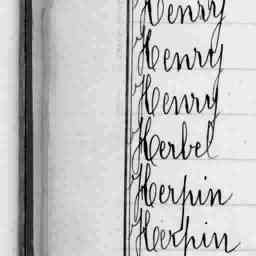 Henry
Henry
Henry
Herbel
Herpin
Herpin